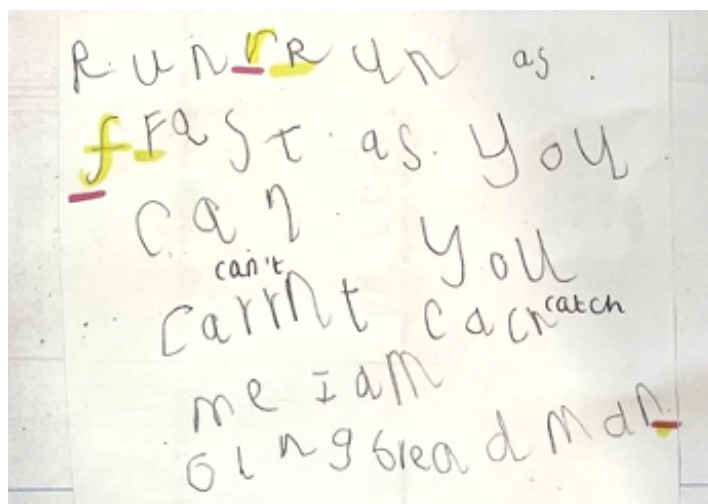 Run r Run as.
f Fast as. you
can. you
can't
carrnt cacn catch
me I am
GingBread man.